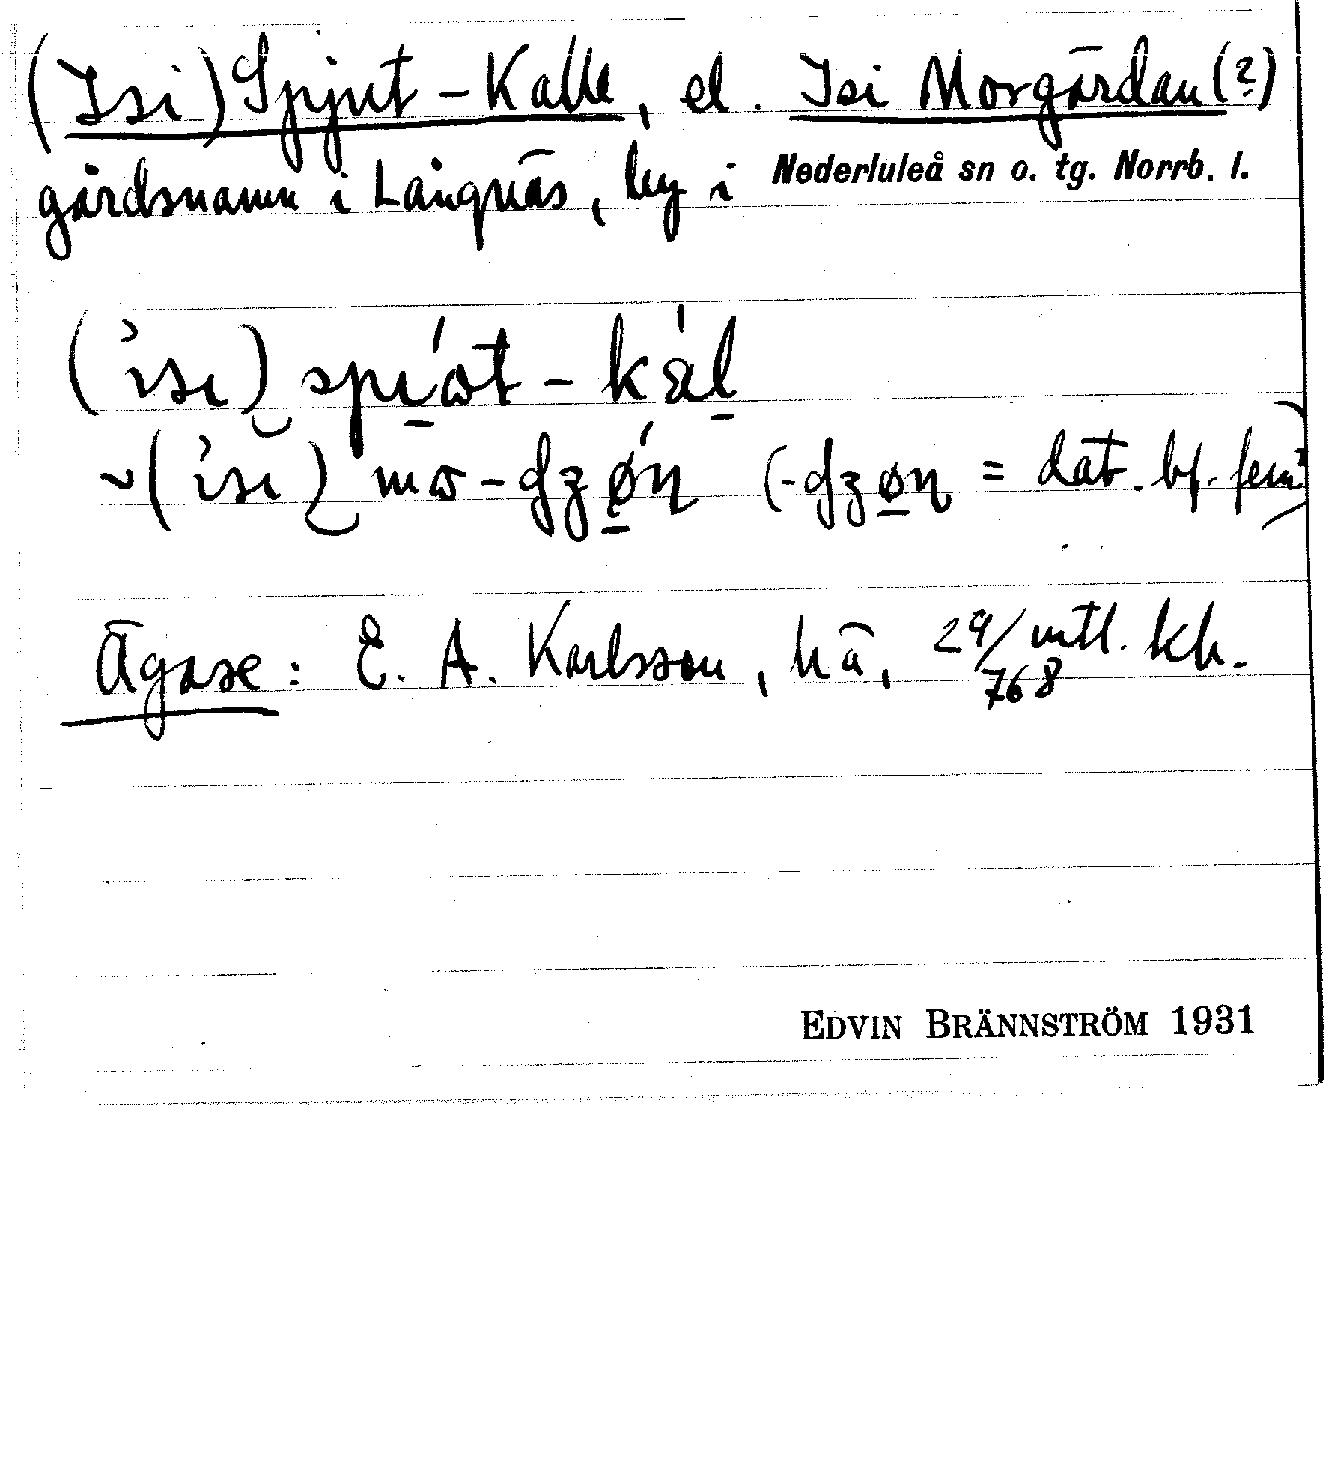 (Isi) Spjut-Kalle, el. Isi Morgårdan (?)
gårdsnamn i Långnäs, by i Nederluleå sn o. tg. Norrb. l.
(ìsı) spı̱ót - káḻ
~ (ìsı) mω - gʒǿ̱n (-gʒø̱n = dat. bf. fem.)
Ägare: E. A. Karlsson, hä, 29/768 mtl. kh.
EDVIN BRÄNNSTRÖM 1931